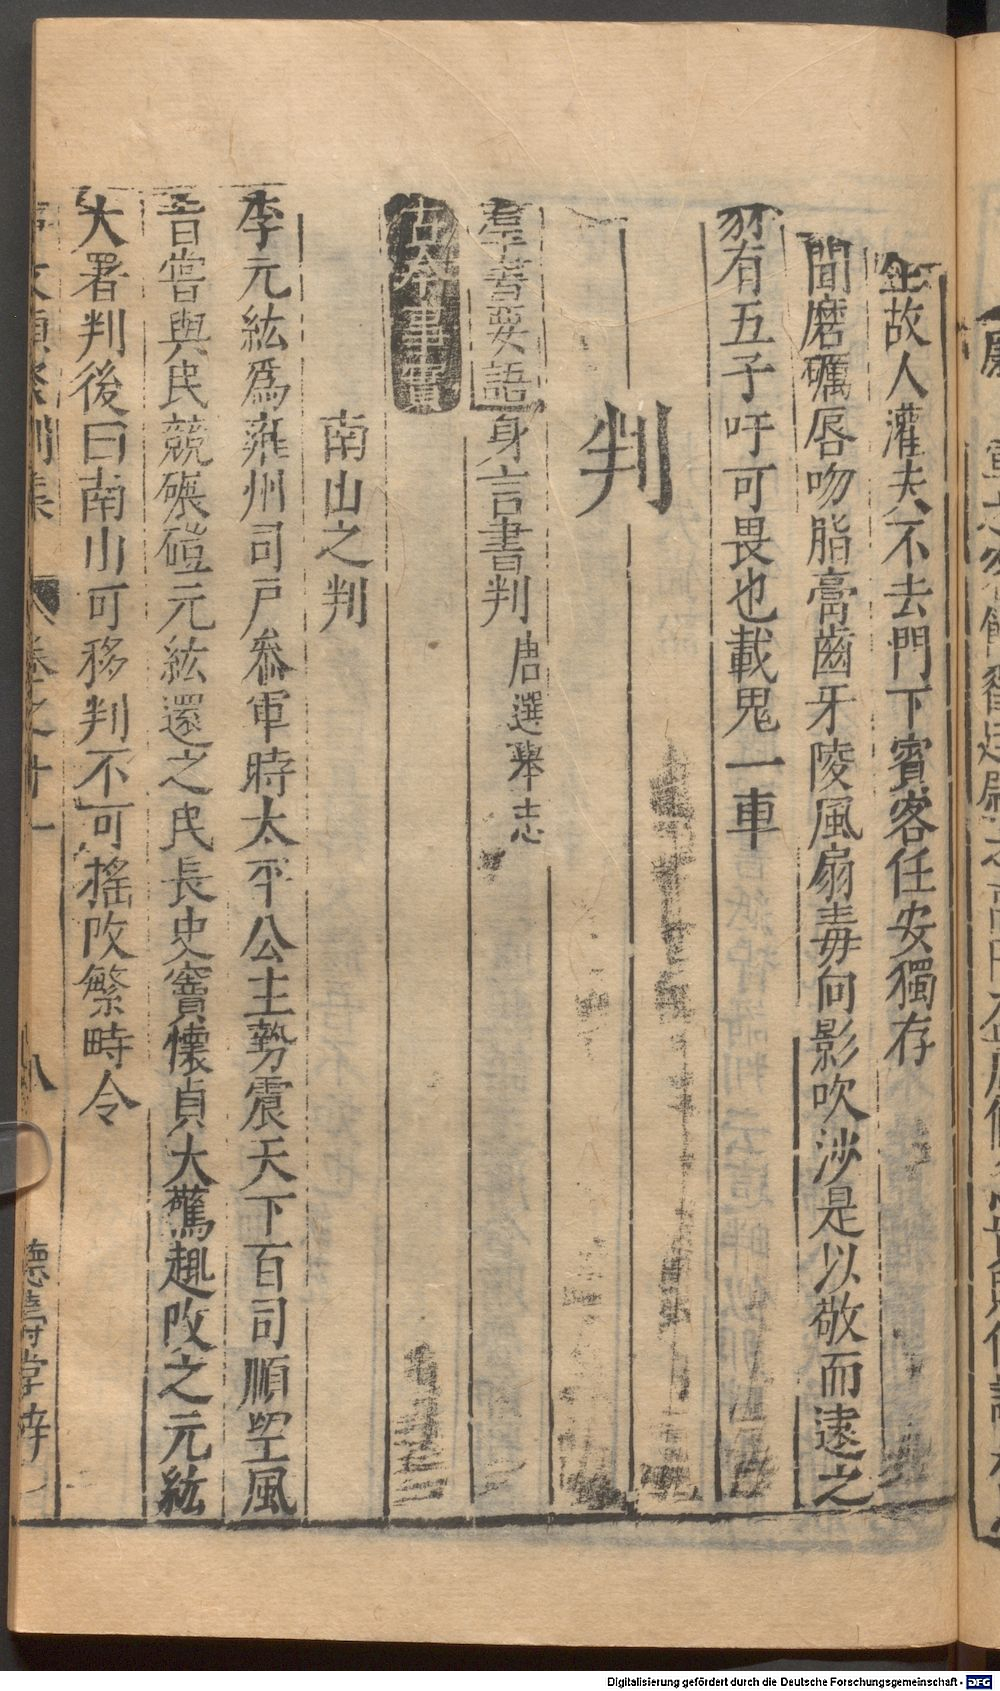 故人灌夫不去門下賓客任安獨存
聞磨礪唇吻脂膏齒牙陵風扇毒向影吹沙是以敬而遠之
豺有五子吁可畏也載鬼一車
判
羣書要語身言書判唐選舉志
古今事實
南山之判
李元紘爲雍州司戶叅軍時太平公主勢震天下百司順望風
旨嘗與民競碾磑元紘還之民長史竇懷貞大驚趣改之元紘
大署判後曰南山可移判不可搖改繁時令
卷之十一
八
德壽堂梓
Digitalisierung gefördert durch die Deutsche Forschungsgemeinschaft - DFG